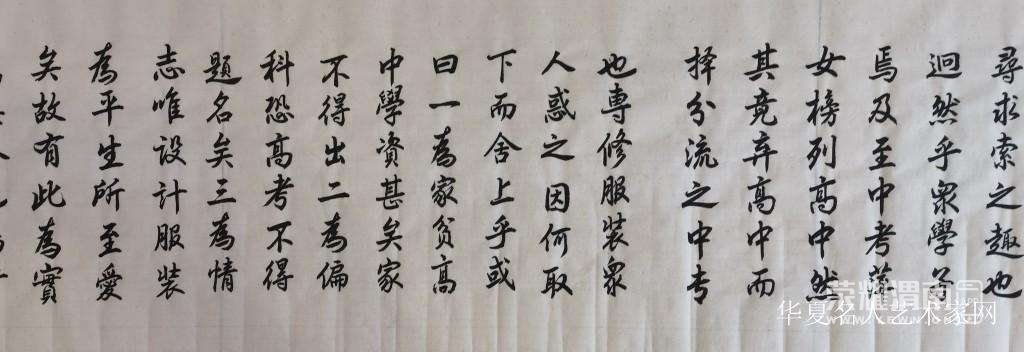 尋求索之趣也
迥然乎衆學
焉及至中考
女榜列高中然
其竟弃高中而
择分流之中专
也專修服装衆
人惑之因何取
下而舍上乎或
曰一為家贫高
中學資甚矣家
不得出二為偏
科恐高考不得
題名矣三為情
志唯設計服装
為平生所至愛
矣故有此為實
荣耀渭南
华夏名人艺术家网